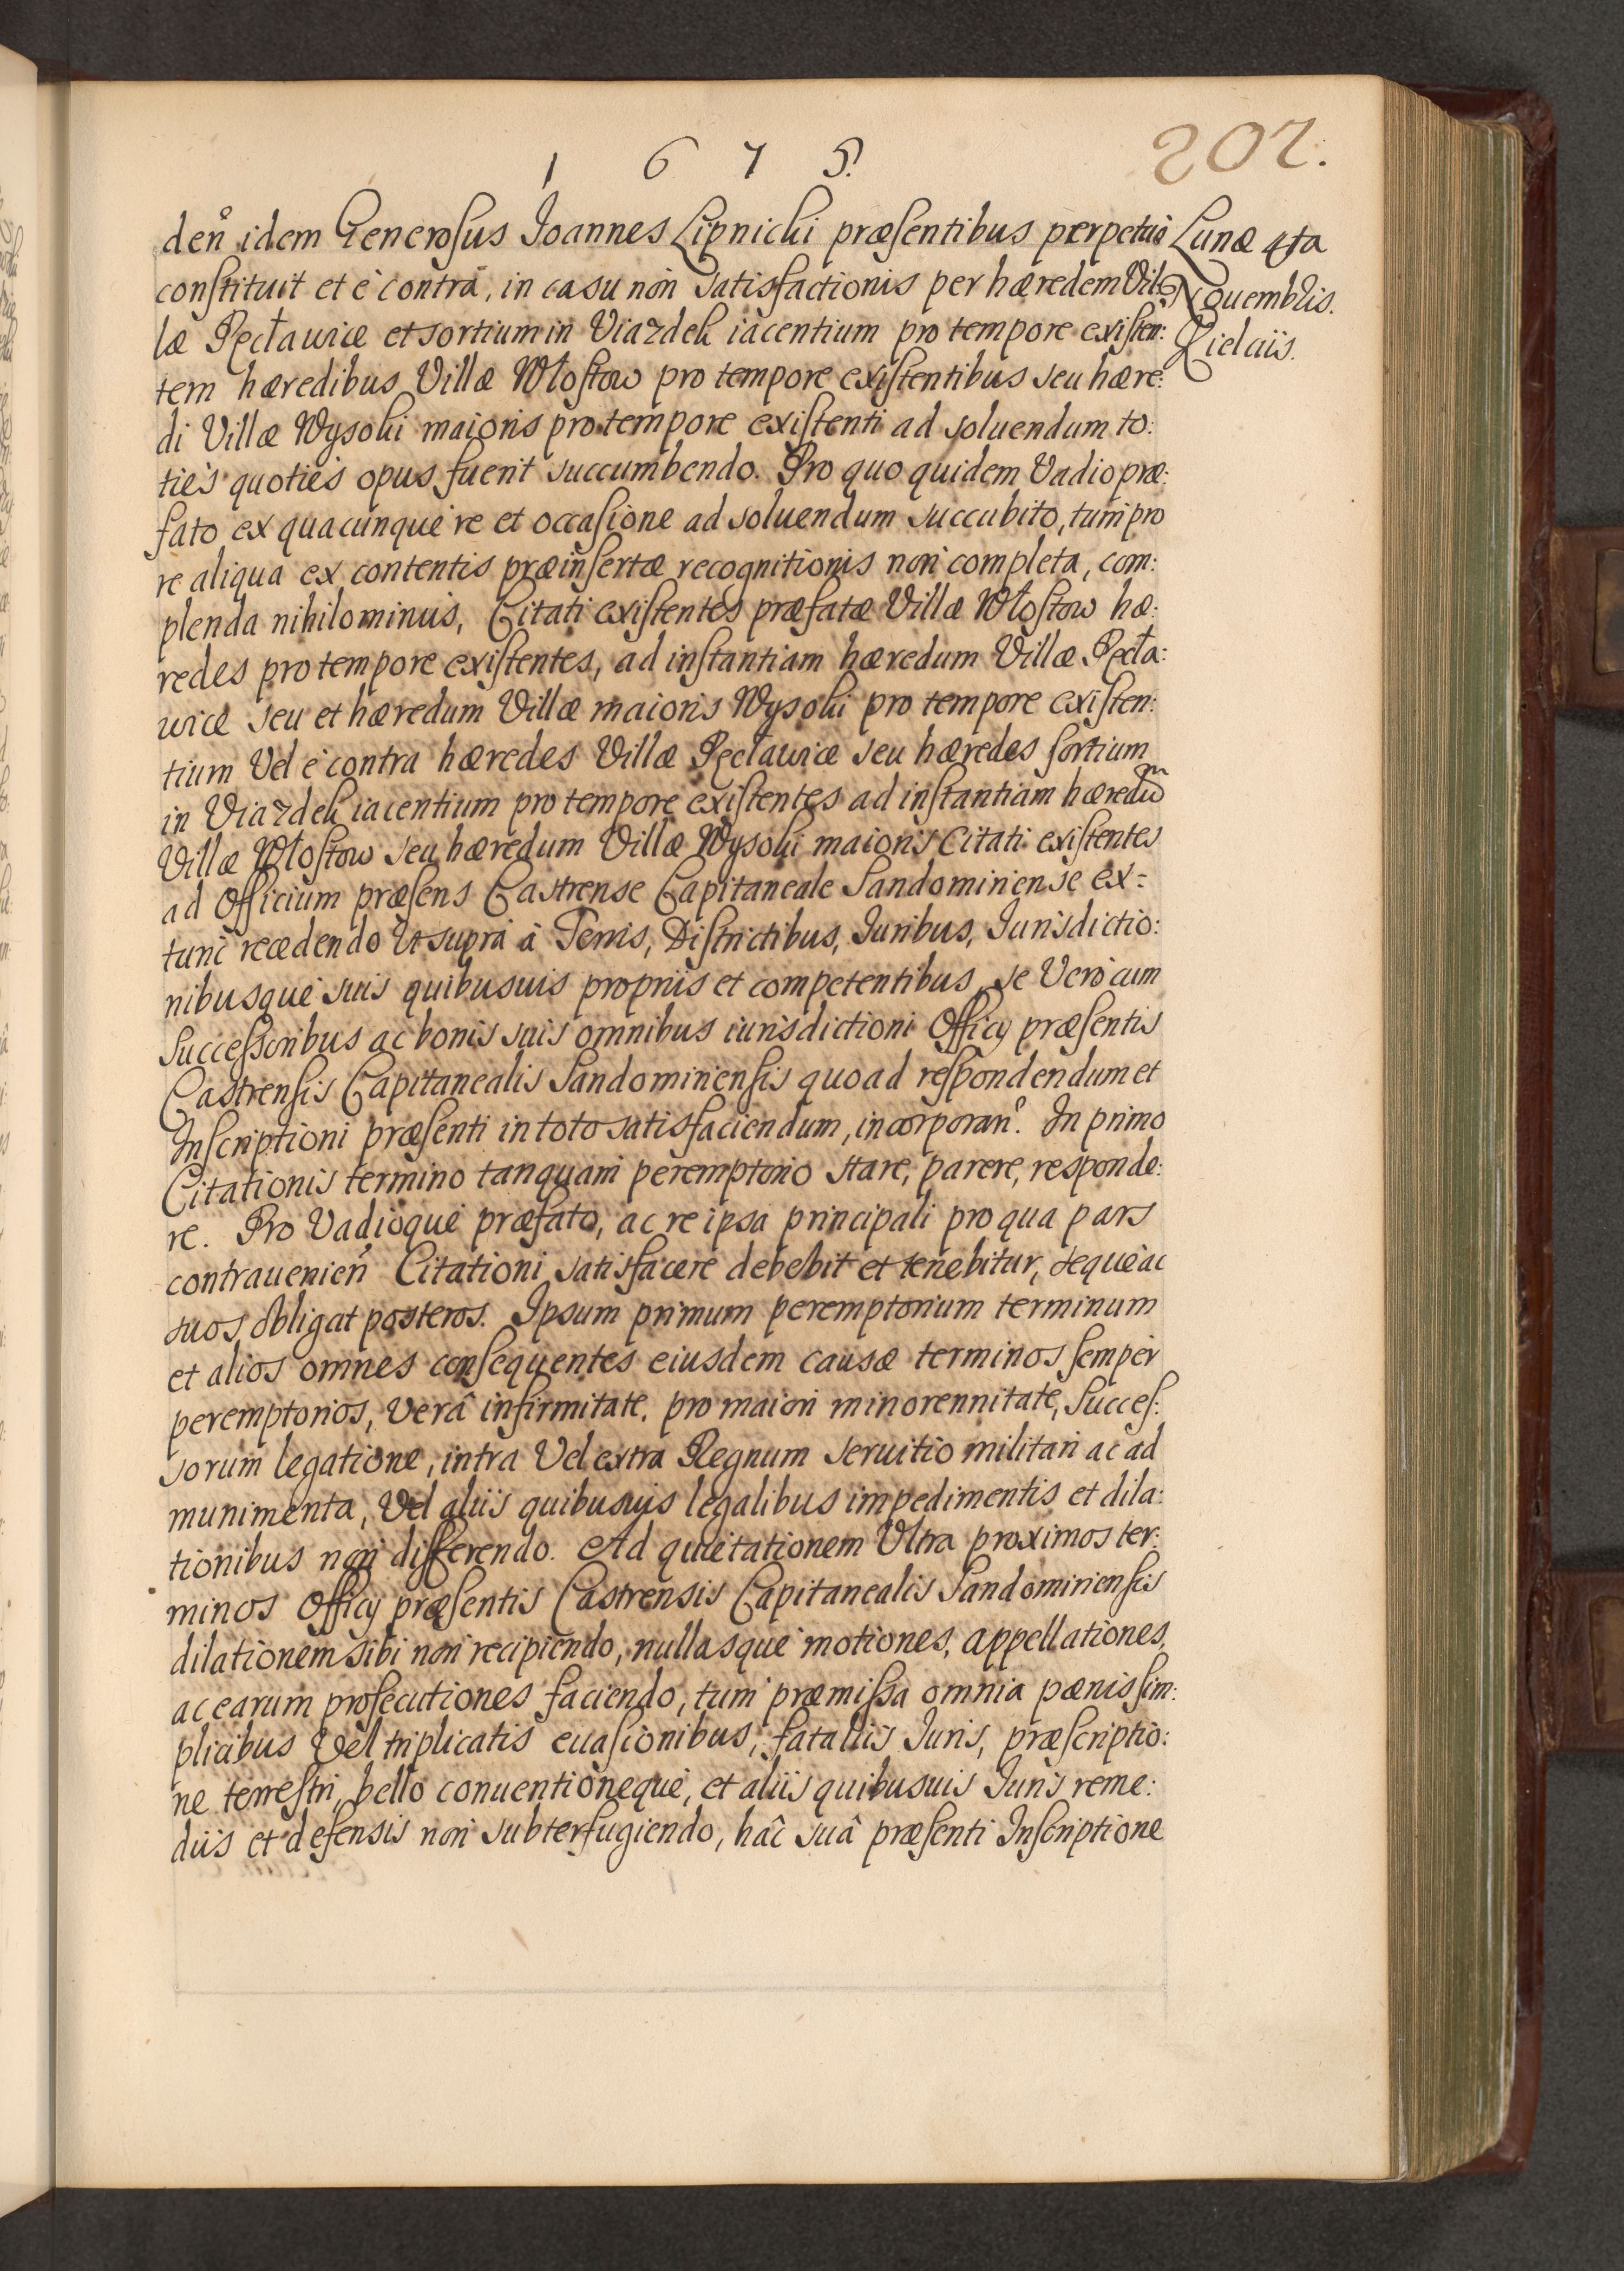 1 6 7 5.
202.
den̉ idem Generosus Joannes Lipnicki præsentibus perpetuò
constituit et è contrà, in casu non satisfactionis per hæredem Vil:
læ Pęcławice et sortium in Viazdek iacentium pro tempore existen:
tem hæredibus Villæ Włostow pro tempore existentibus seu hære:
di Villæ Wysoki maioris pro tempore existenti ad soluendum to:
ties quoties opus fuerit succumbendo. Pro quo quidem Vadio præ:
fato ex quacunque re et occasione ad soluendum succubito, tum pro
re aliqua ex contentis præinsertæ recognitionis non completa, com:
plenda nihilominus, Citati existentes præfatæ Villæ Włostow hæ:
redes pro tempore existentes, ad instantiam hæredum Villæ Pęcła:
wice seu et hæredum Villæ maioris Wysoki pro tempore existen:
tium Vel è contra hæredes Villæ Pęcławice seu hæredes sortium
in Viazdek iacentium pro tempore existentes ad instantiam hæredum
Villæ Włostow seu hæredum Villæ Wysoki maioris Citati existentes
ad Officium præsens Castrense Capitaneale Sandomiriense ex=
tunc recedendo Vt supra à Terris, Districtibus, Iuribus, Iurisdictio:
nibusque suis quibusuis propriis et competentibus, se Vero cum
Successoribus ac bonis suis omnibus iurisdictioni Officy præsentis
Castrensis Capitanealis Sandomiriensis quoad respondendum et
Inscriptioni præsenti in toto satisfaciendum, incorporan̉. In primo
Citationis termino tanquam peremptorio stare, parere, responde:
re. Pro Vadioque præfato, ac re ipsa principali pro qua pars
contrauenien̉ Citationi satisfacere debebit et tenebitur, seque ac
suos obligat posteros. Ipsum primum peremptorium terminum
et alios omnes consequentes eiusdem causæ terminos semper
peremptorios, Verâ infirmitate, pro maiori minorennitate, Succes:
sorum legatione, intra Vel extra Regnum seruitio militari ac ad
munimenta, Vel aliis quibusuis legalibus impedimentis et dila:
tionibus non differendo. Ad quietationem Vltra proximos ter:
minos Officy præsentis Castrensis Capitanealis Sandomiriensis
dilationem sibi non recipiendo, nullasque motiones, appellationes,
ac earum prosecutiones faciendo, tum præmissa omnia pœnis sim:
plicibus Vel triplicatis euasionibus, fataliis Iuris, præscriptio:
ne terrestri, bello conuentioneque, et aliis quibusuis Iuris reme:
diis et defensis non subterfugiendo, hâc suâ præsenti Inscriptione
Lunæ 4ta
Nouembris.
Kielciis.